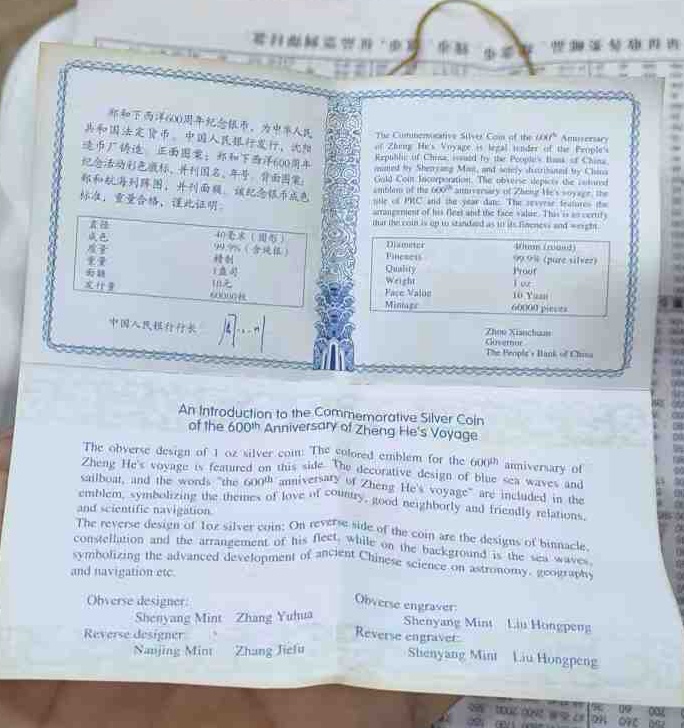 郑和下西洋600周年纪念银币，为中华人民
共和国法定货币。中国人民银行发行，沈阳
造币厂铸造。正面图案：郑和下西洋600周年
纪念活动彩色徽标，并刊国名、年号。背面图案：
郑和航海列阵图，并刊面额。该纪念银币成色
标准，重量合格，谨此证明。
直径 40毫米（圆形）
成色 99.9%（含纯银）
质量 精制
重量 1盎司
面额 10元
发行量 60000枚
中国人民银行行长
The Commemorative Silver Coin of the 600th Anniversary
of Zheng He's Voyage is legal tender of the People's
Republic of China, issued by the People's Bank of China,
minted by Shenyang Mint, and solely distributed by China
Gold Coin Incorporation. The obverse depicts the colored
emblem of the 600th anniversary of Zheng He's voyage, the
title of PRC and the year date. The reverse features the
arrangement of his fleet and the face value. This is to certify
that the coin is up to standard as to its fineness and weight.
Diameter 40mm (round)
Fineness 99.9% (pure silver)
Quality Proof
Weight 1 oz
Face Value 10 Yuan
Mintage 60000 pieces
Zhou Xiaochuan
Governor
The People's Bank of China
An Introduction to the Commemorative Silver Coin
of the 600th Anniversary of Zheng He's Voyage
The obverse design of 1 oz silver coin: The colored emblem for the 600th anniversary of
Zheng He's voyage is featured on this side. The decorative design of blue sea waves and
sailboat, and the words "the 600th anniversary of Zheng He's voyage" are included in the
emblem, symbolizing the themes of love of country, good neighborly and friendly relations,
and scientific navigation.
The reverse design of 1oz silver coin: On reverse side of the coin are the designs of binnacle,
constellation and the arrangement of his fleet, while on the background is the sea waves,
symbolizing the advanced development of ancient Chinese science on astronomy, geography
and navigation etc.
Obverse designer:
Shenyang Mint Zhang Yuhua
Reverse designer:
Nanjing Mint Zhang Jiefu
Obverse engraver:
Shenyang Mint Liu Hongpeng
Reverse engraver:
Shenyang Mint Liu Hongpeng